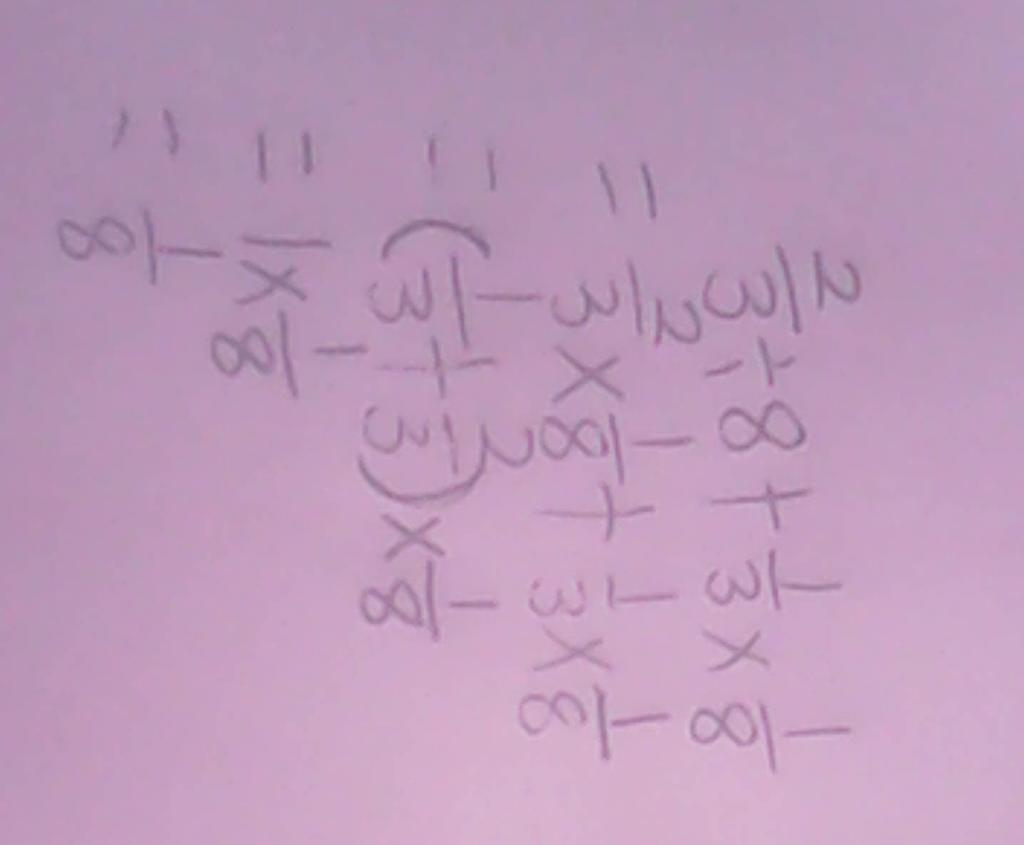 2/3 ÷ 8 + 1/3 × 1/8
= 2/3 × 1/8 + 1/3 × 1/8
= (1/3 + 2/3) × 1/8
= 1 × 1/8
= 1/8